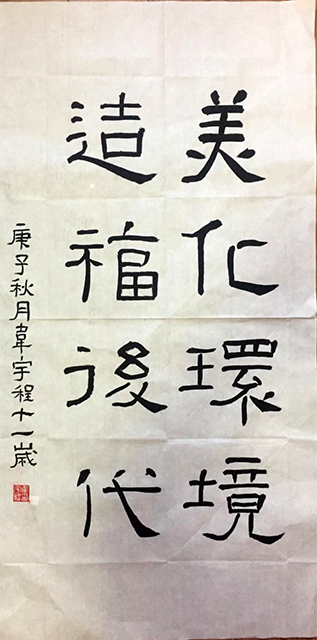 美化環境
造福後代
庚子秋月韋宇程十一歲